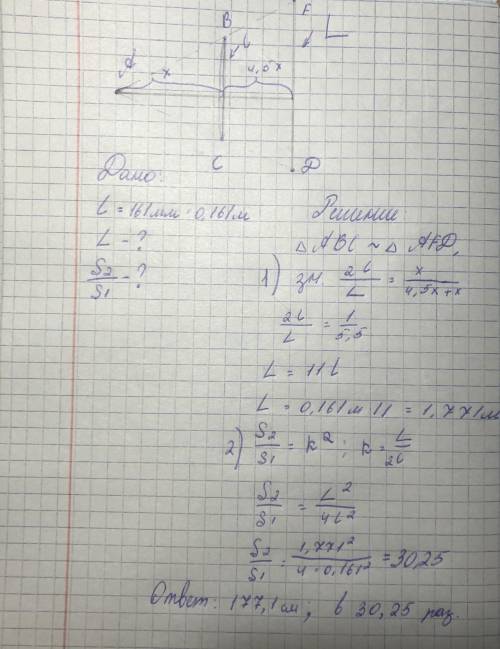 B
F
l
L
A
x
4,5x
C
D
Дано:
l = 161мм = 0,161м
L - ?
S2/S1 - ?
Решение
△ABC ~ △AFD,
1) зн. 2l/L = x/(4,5x+x)
2l/L = 1/5,5
L = 11l
L = 0,161м·11 = 1,771м
2) S2/S1 = k²; k = L/2l
S2/S1 = L²/4l²
S2/S1 = 1,771²/4·0,161² = 30,25
Ответ: 177,1см; в 30,25 раз.